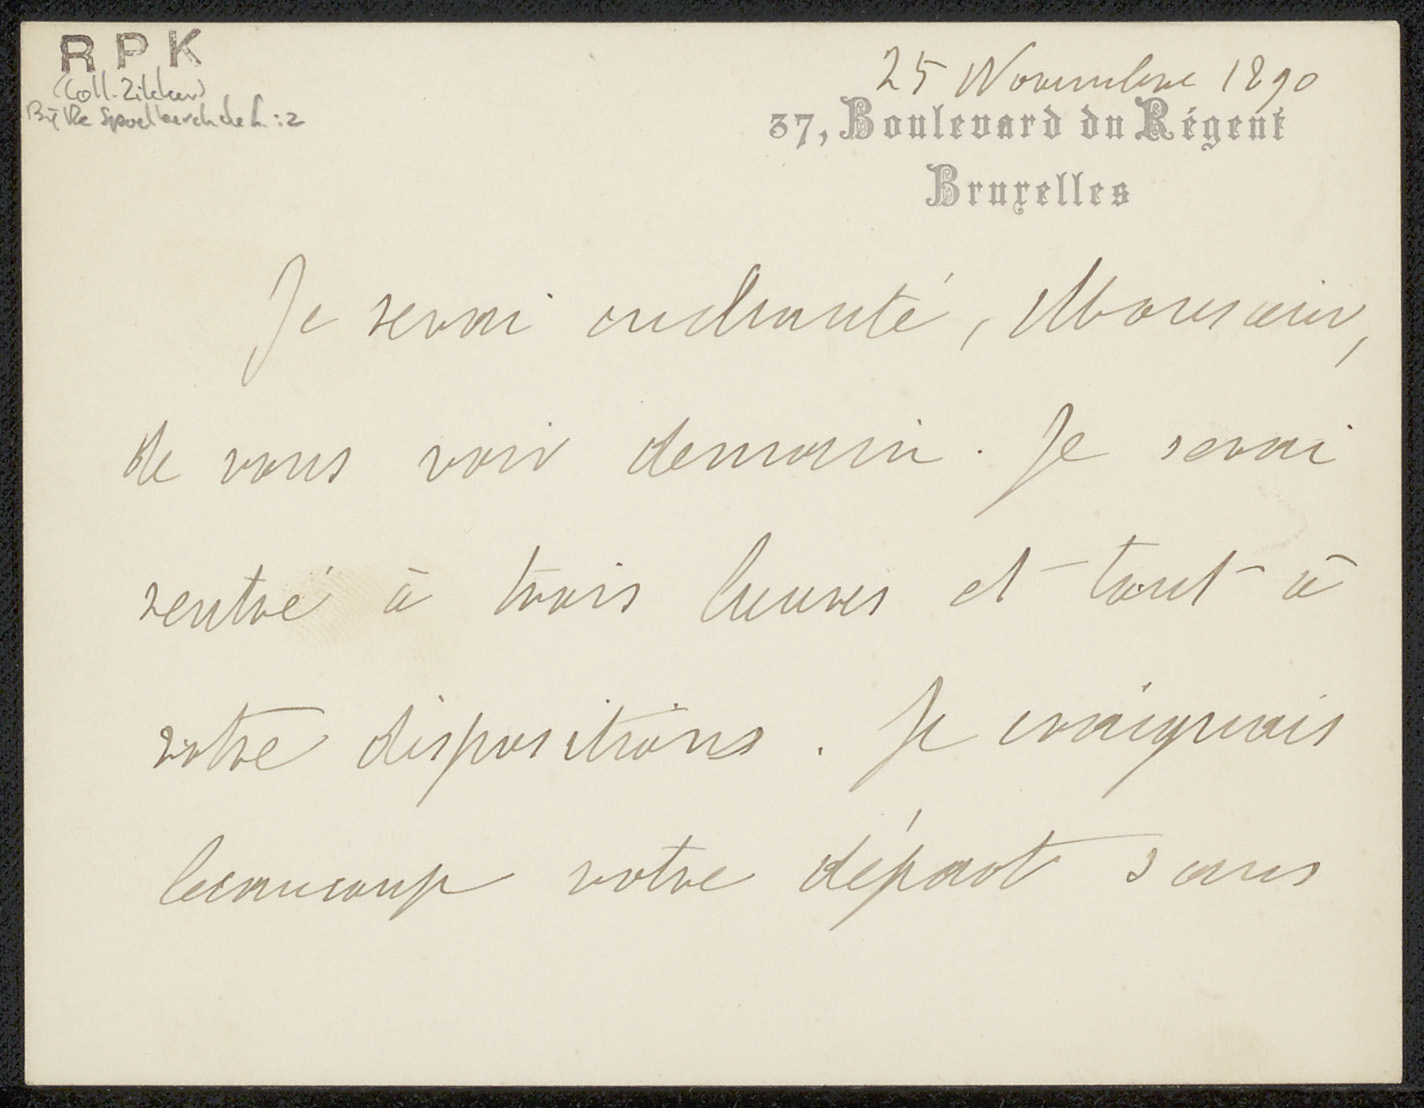 RPK
(Coll. Zilcken)
Bij De Spoelberch de L : 2
25 Novembre 1890
37, Boulevard du Régent
Bruxelles
Je serai enchanté, Monsieur,
de vous voir demain. Je serai
rentré à trois heures et tout à
votre dispositions. Je craignais
beaucoup votre départ sans